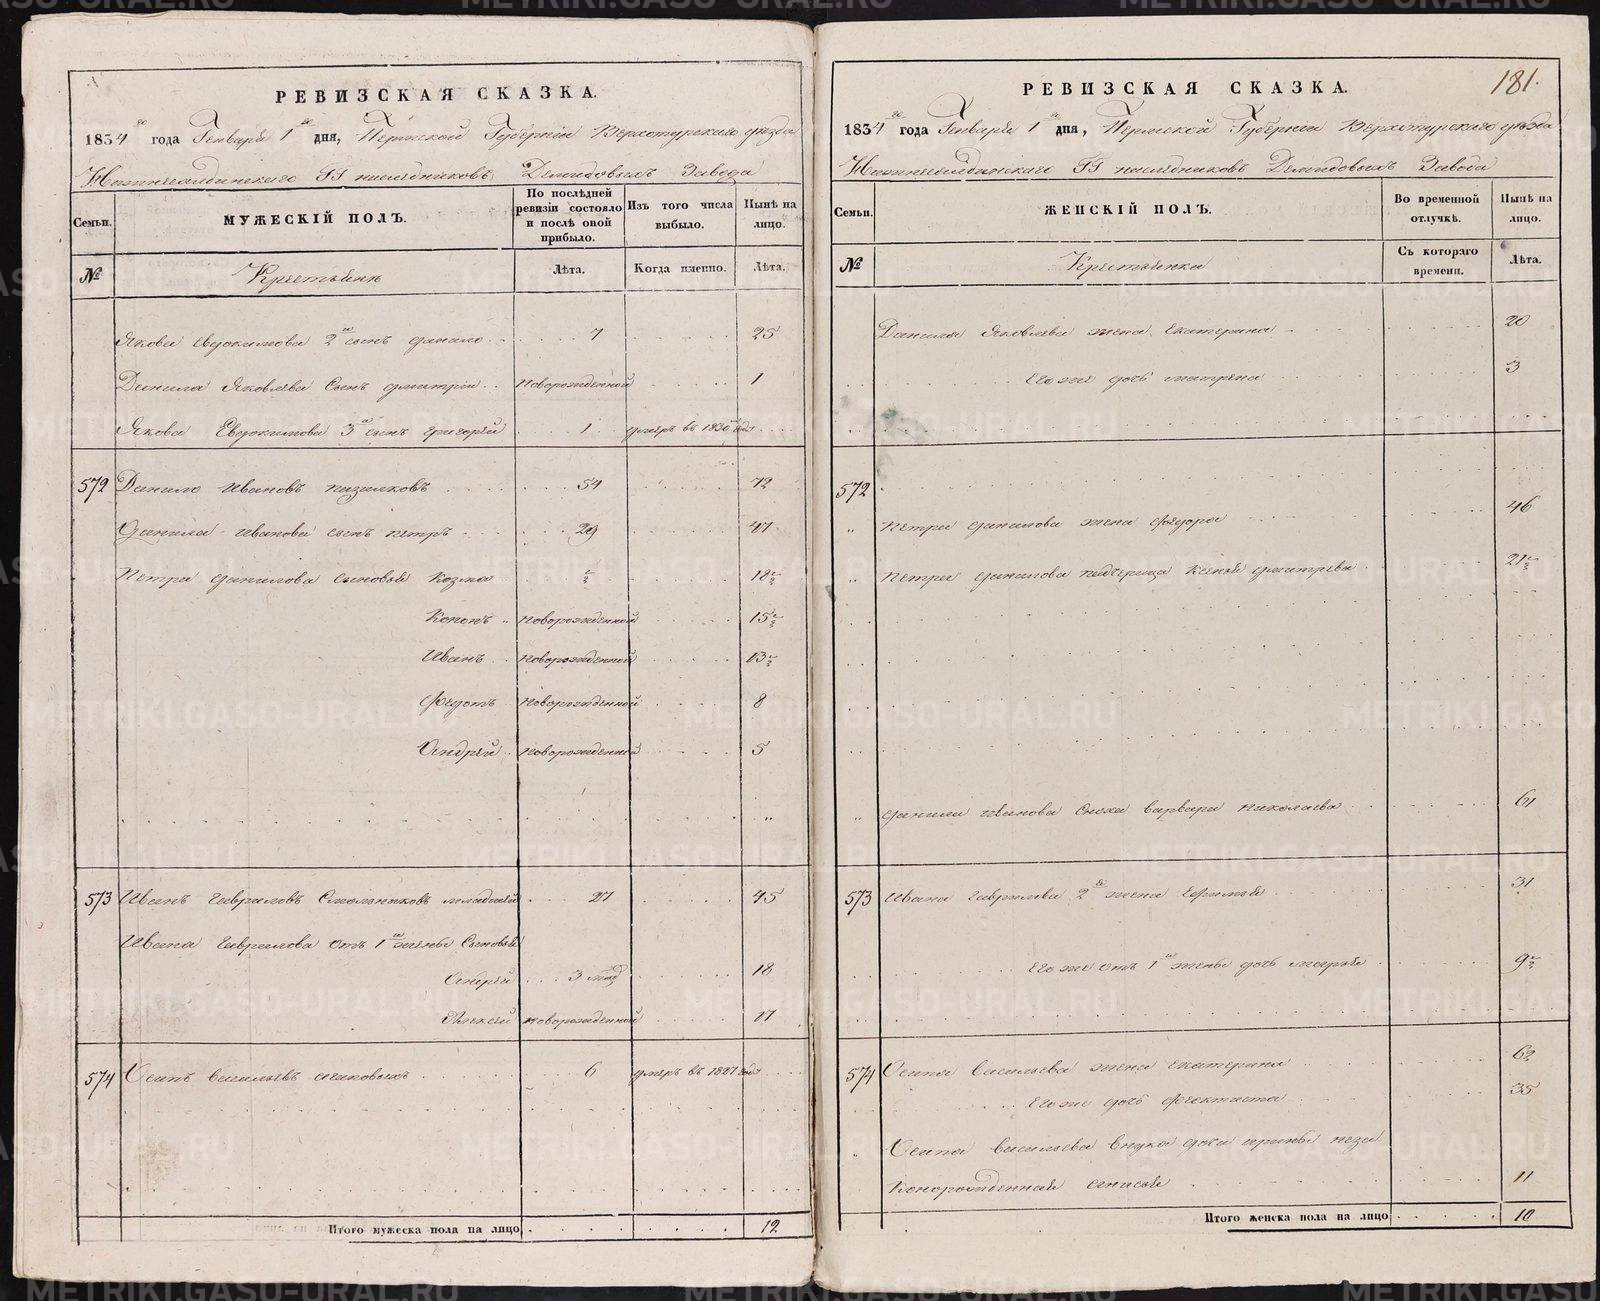 РЕВИЗСКАЯ СКАЗКА.
1834го года Генваря 1го дня, Пермской Губернiи Верхотурскаго уѣзда
Нижнесалдинскаго ГГ наслѣдниковъ Демидовыхъ Завода
Семьи.
МУЖЕСКIЙ ПОЛЪ.
По послѣдней ревизiи состояло и послѣ оной прибыло.
Изъ того числа выбыло.
Нынѣ на лицо.
№
Крестьянѣ
Лѣта.
Когда именно.
Лѣта.
Якова Евдокимова 2й сынъ Данило 7 25
Данила Яковлева сынъ Дмитрiй Новорожденной 1
Якова Евдокимова 3й сынъ Григорiй 1 умеръ въ 1830 году
572 Данило Ивановъ 54 72
Данила Иванова сынъ Петръ 29 47
Петра Данилова сыновья Козма ½ 18½
Кононъ Новорожденной 15½
Иванъ Новорожденной 13½
Федотъ Новорожденной 8
Андрей Новорожденной 5
573 Иванъ Гавриловъ младшiй 27 45
Ивана Гаврилова отъ 1й жены Сыновья
Андрей 3 мѣс 18
Алексѣй Новорожденной 17
574 Осипъ Васильевъ 6 умеръ въ 1827 году
Итого мужеска пола на лицо 12
181.
РЕВИЗСКАЯ СКАЗКА.
1834го года Генваря 1го дня, Пермской Губернiи Верхотурскаго уѣзда
Нижнесалдинскаго ГГ наслѣдниковъ Демидовыхъ Завода
Семьи.
ЖЕНСКIЙ ПОЛЪ.
Во временной отлучкѣ.
Нынѣ на лицо.
№
Крестьянки
Съ котораго времени.
Лѣта.
Данила Яковлева жена Екатерина 20
Его же дочь Матрена 3
572
Петра Данилова жена Федора 46
Петра Данилова падчерица Ксенья Дмитрева 21½
Данила Иванова Сноха Варвара Николаева 61
573 Ивана Гаврилова 2я жена Ефимья 31
Его же отъ 1й жены дочь Марья 9½
574 Осипа Васильева жена Екатерина 62
Его же дочь Феоктиста 35
Осипа Васильева внука дочи Ирины неза
конорожденная Анисья 11
Итого женска пола на лицо 10
METRIKI.GASO-URAL.RU